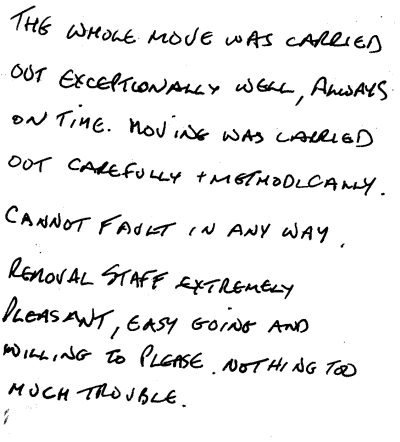 THE WHOLE MOVE WAS CARRIED
OUT EXCEPTIONALLY WELL, ALWAYS
ON TIME. MOVING WAS CARRIED
OUT CAREFULLY + METHODICALLY.
CANNOT FAULT IN ANY WAY.
REMOVAL STAFF EXTREMELY
PLEASANT, EASY GOING AND
WILLING TO PLEASE. NOTHING TOO
MUCH TROUBLE.